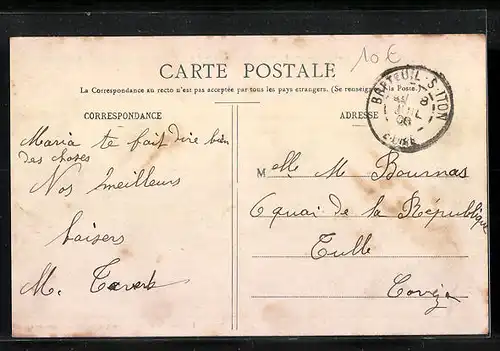 10€
CARTE POSTALE
La Correspondance au recto n'est pas acceptée par tous les pays étrangers. (Se renseigner à la Poste.)
CORRESPONDANCE
Maria te fait dire bien
des choses
Nos meilleurs
baisers
M.
ADRESSE
BRETEUIL-S-ITON
8
JUIL
EURE
Melle M Bournas
6 quai de la République
Tulle
Corrèze